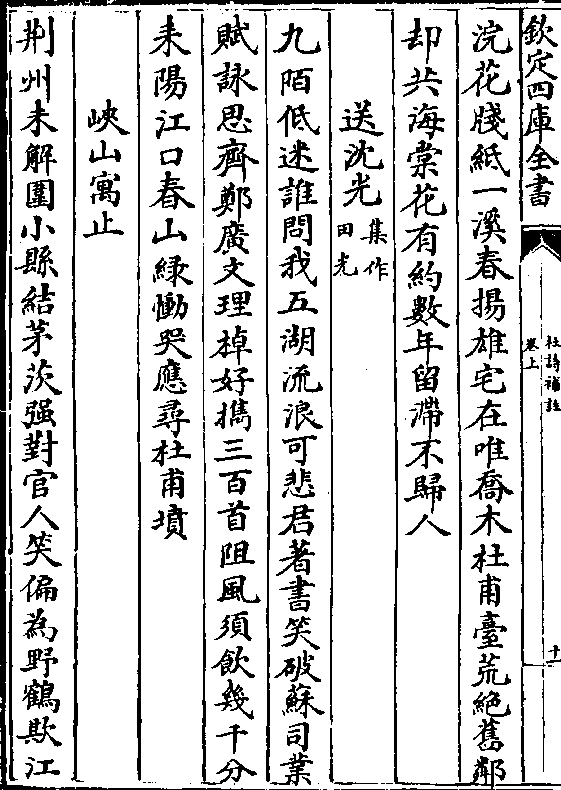 欽定四庫全書
杜詩補註
卷上
十一
浣花牋紙一溪春揚雄宅在唯喬木杜甫臺荒絶舊鄰
却共海棠花有約數年留滯不歸人
送沈光集作田光
九陌低迷誰問我五湖流浪可悲君著書笑破蘇司業
賦詠思齊鄭廣文理棹好攜三百首阻風須飲幾千分
耒陽江口春山緑慟哭應尋杜甫墳
峽山寓止
荆州未解圍小縣結茅茨强對官人笑偏為野鶴欺江